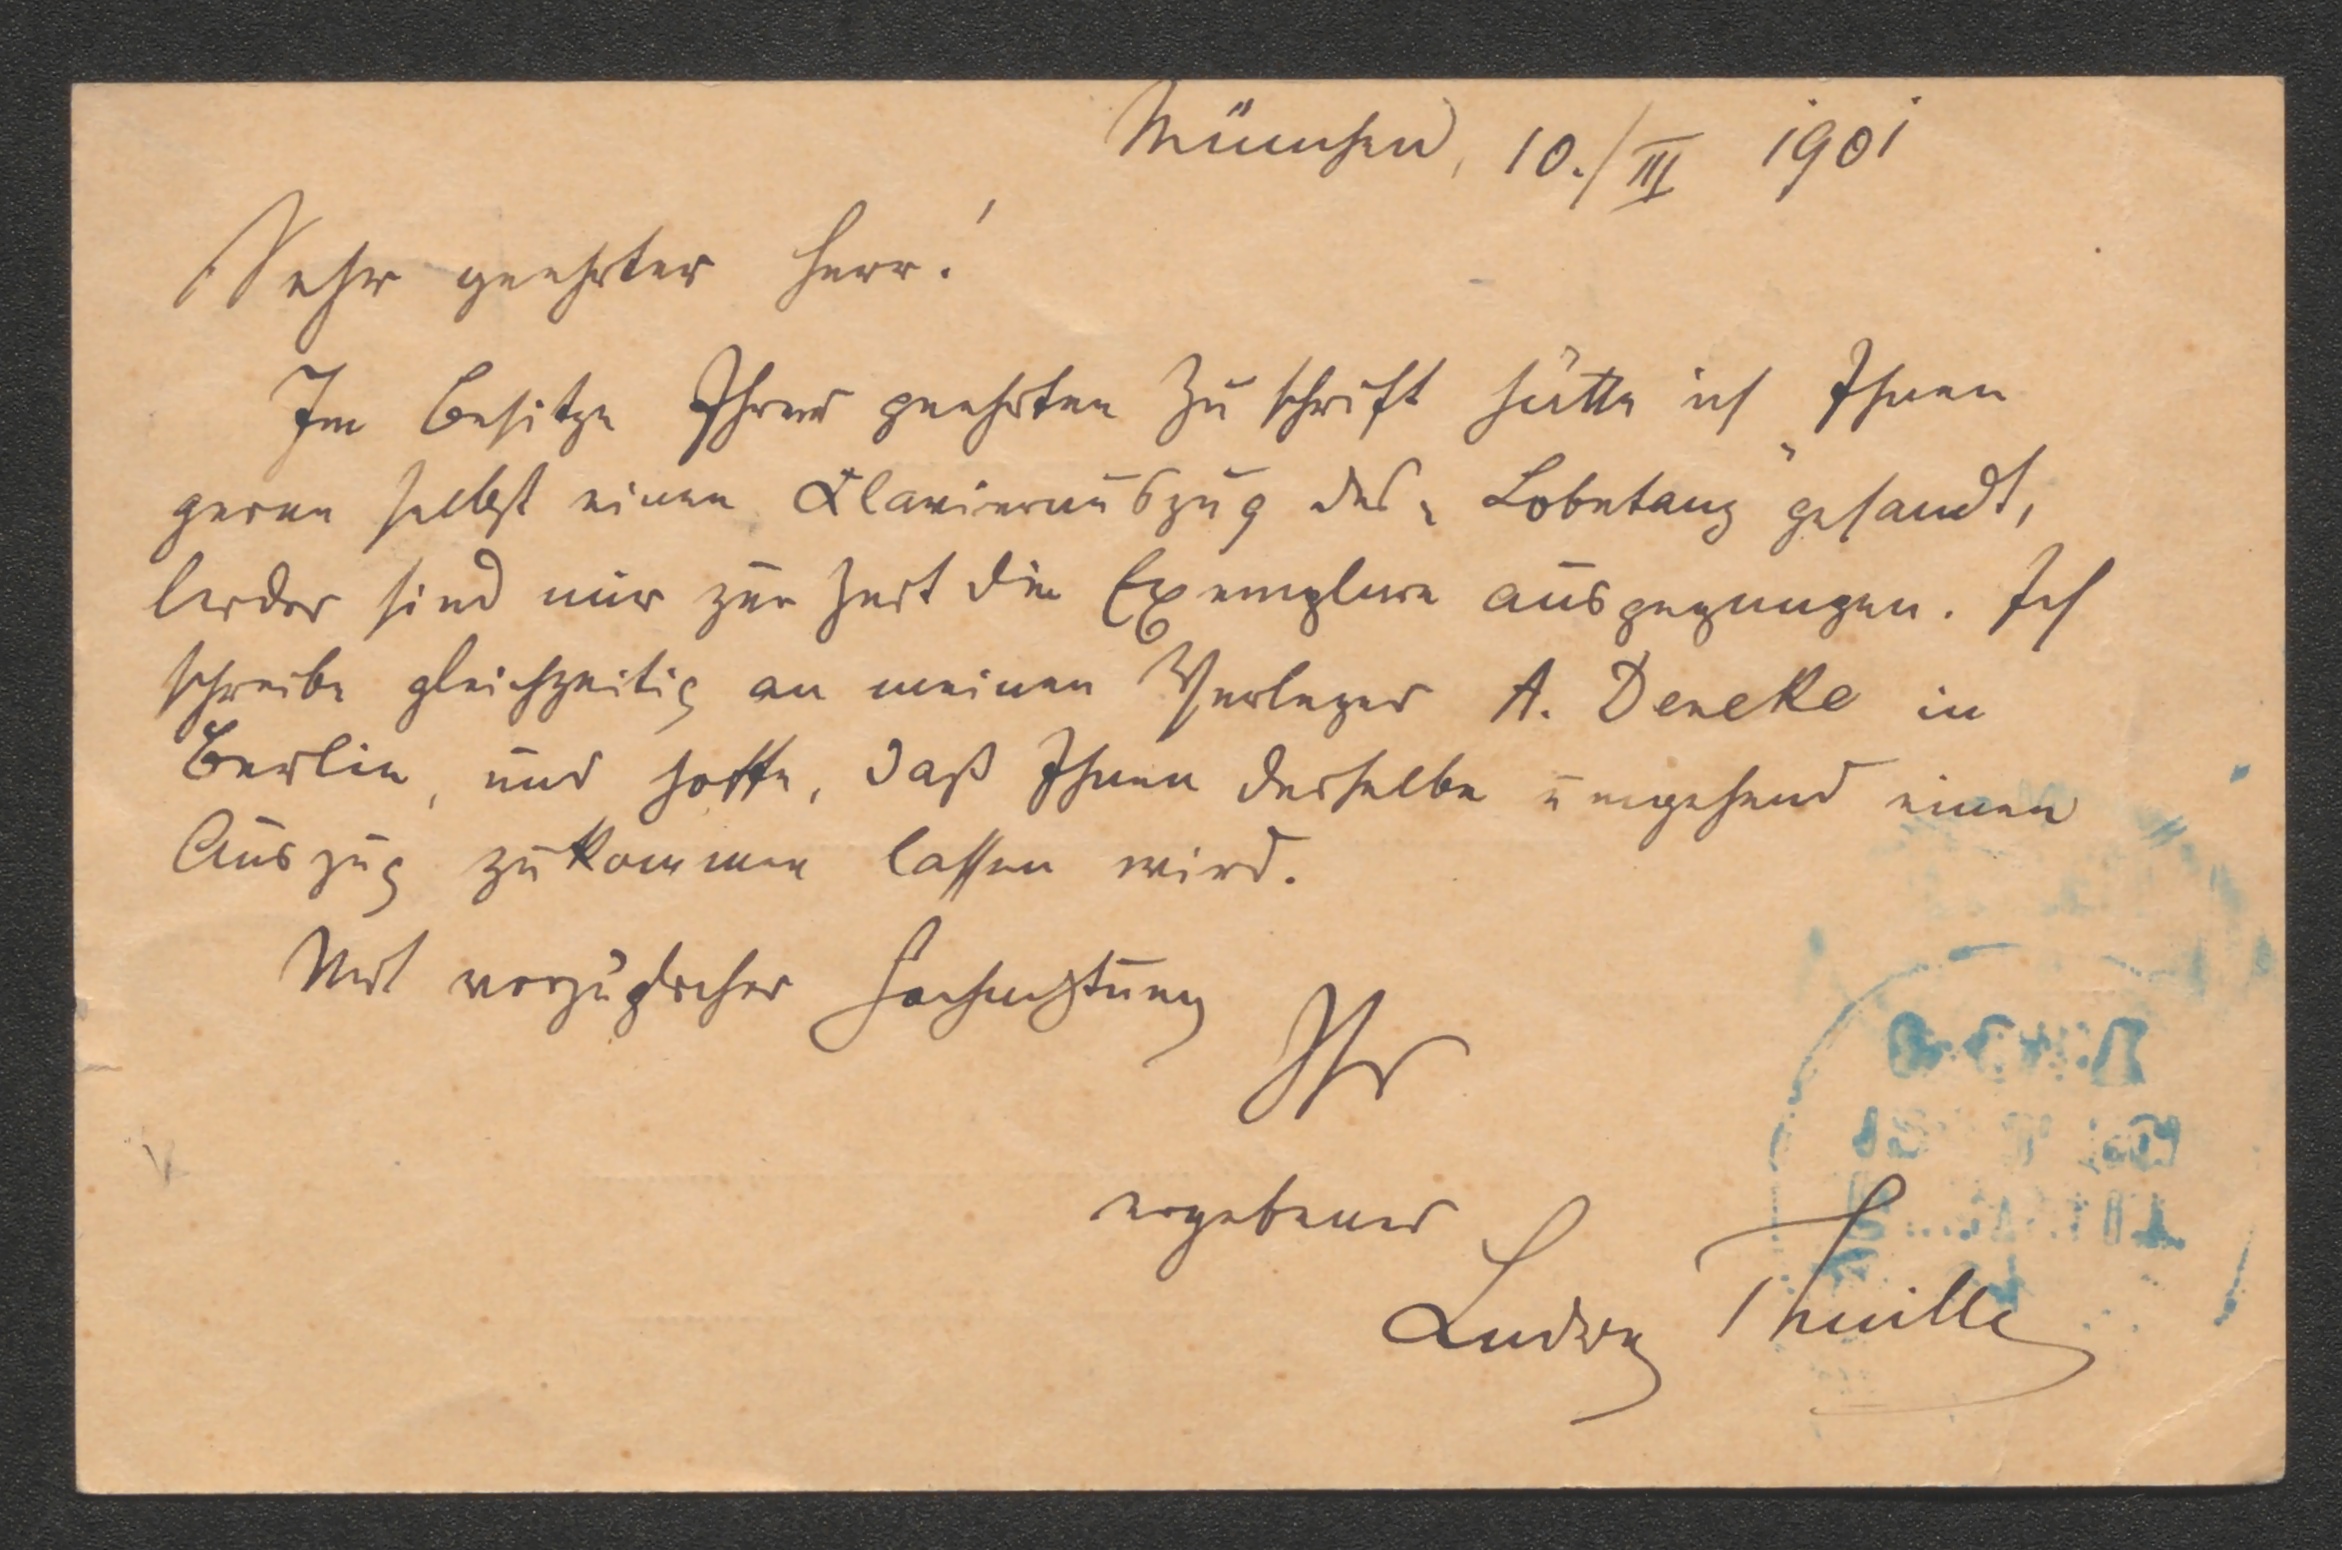 München, 10./III 1901
Sehr geehrter Herr!
Im Besitze Ihrer geehrten Zuschrift hätte ich Ihnen
gerne selbst einen Klavierauszug des „Lobetanz“ gesandt,
leider sind mir zur Zeit die Exemplare ausgegangen. Ich
schreibe gleichzeitig an meinen Verleger A. Deneke in
Berlin, und hoffe, daß Ihnen derselbe umgehend einen
Auszug zukommen lassen wird.
Mit vorzüglicher Hochachtung
Ihr
ergebener
Ludwig Thuille